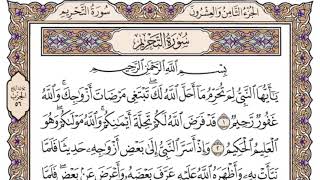 الجزء الثامن والعشرون
سورة التحريم
سُورَةُ التَّحْرِيمِ
بِسْمِ اللَّهِ الرَّحْمَٰنِ الرَّحِيمِ
يَٰٓأَيُّهَا ٱلنَّبِىُّ لِمَ تُحَرِّمُ مَآ أَحَلَّ ٱللَّهُ لَكَ ۖ تَبْتَغِى مَرْضَاتَ أَزْوَٰجِكَ ۚ وَٱللَّهُ
غَفُورٌ رَّحِيمٌ ١ قَدْ فَرَضَ ٱللَّهُ لَكُمْ تَحِلَّةَ أَيْمَٰنِكُمْ ۚ وَٱللَّهُ مَوْلَىٰكُمْ ۖ وَهُوَ
ٱلْعَلِيمُ ٱلْحَكِيمُ ٢ وَإِذْ أَسَرَّ ٱلنَّبِىُّ إِلَىٰ بَعْضِ أَزْوَٰجِهِۦ حَدِيثًا فَلَمَّا
نَبَّأَتْ بِهِۦ وَأَظْهَرَهُ ٱللَّهُ عَلَيْهِ عَرَّفَ بَعْضَهُۥ وَأَعْرَضَ عَنۢ بَعْضٍ ۖ فَلَمَّا
الحزب
٥٦